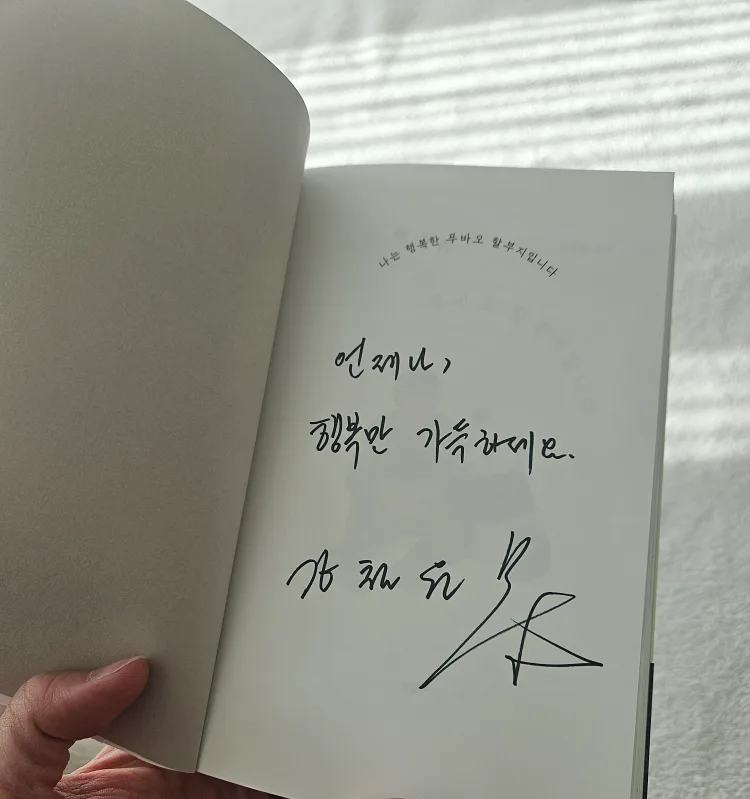 나는 행복한 푸바오 할부지입니다
언제나,
행복만 가득하세요.
강철원